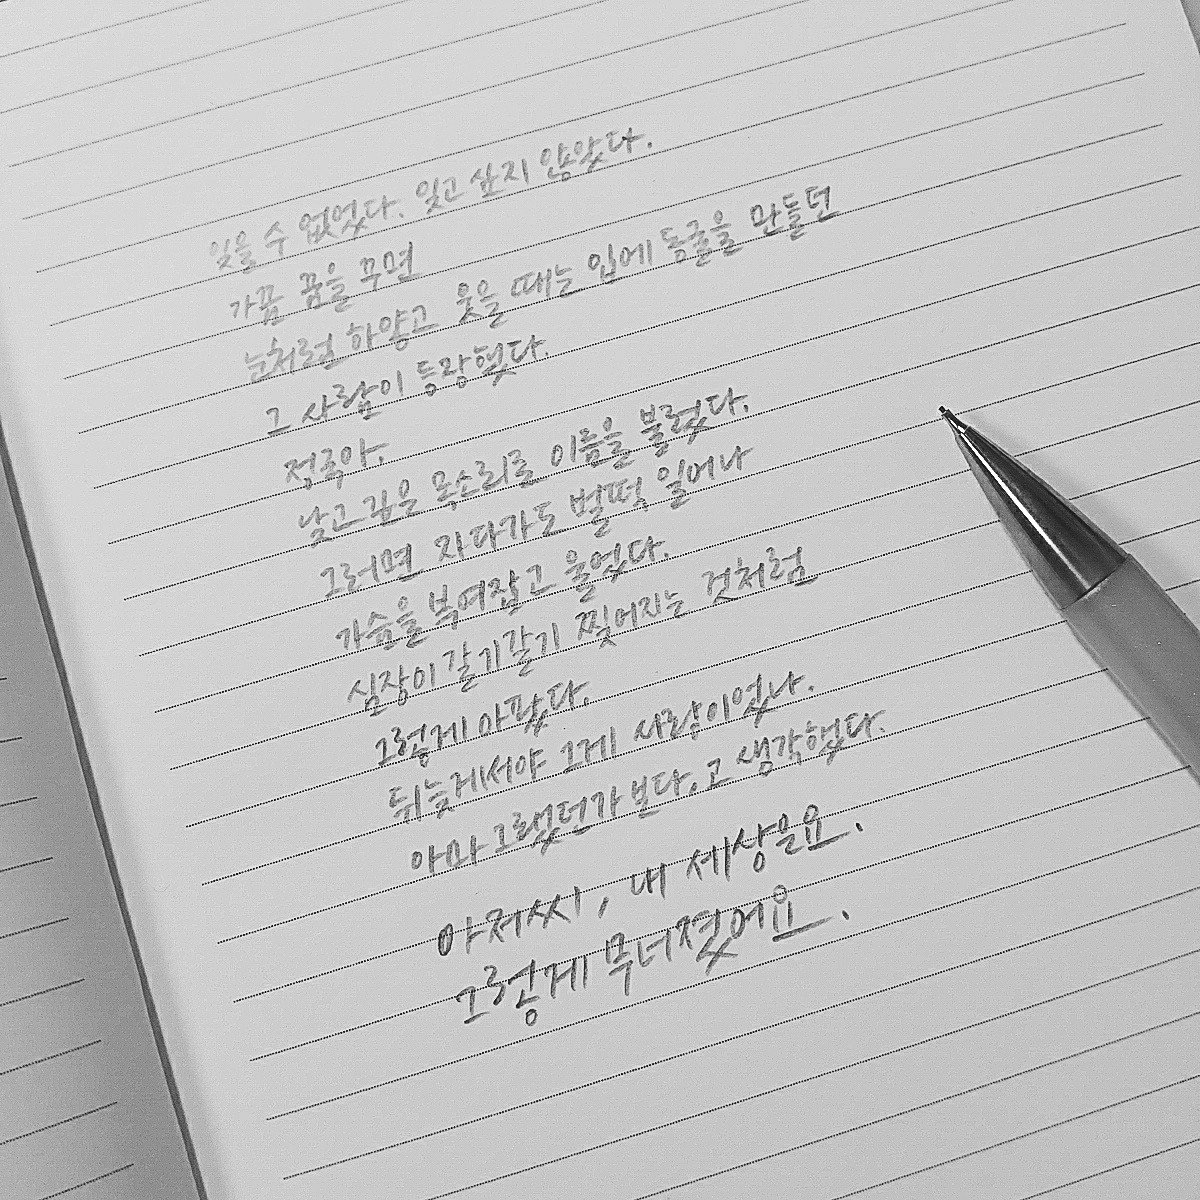 잊을 수 없었다. 잊고 싶지 않았다.
가끔 꿈을 꾸면
눈처럼 하얗고 웃을 때는 입에 동굴을 만들던
그 사람이 등장했다.
정국아.
낮고 깊은 목소리로 이름을 불렀다.
그러면 자다가도 벌떡 일어나
가슴을 부여잡고 울었다.
심장이 갈기갈기 찢어지는 것처럼
그렇게 아팠다.
뒤늦게서야 그게 사랑이었나.
아마 그랬던가 보다,고 생각했다.
아저씨, 내 세상은요.
그렇게 무너졌어요.